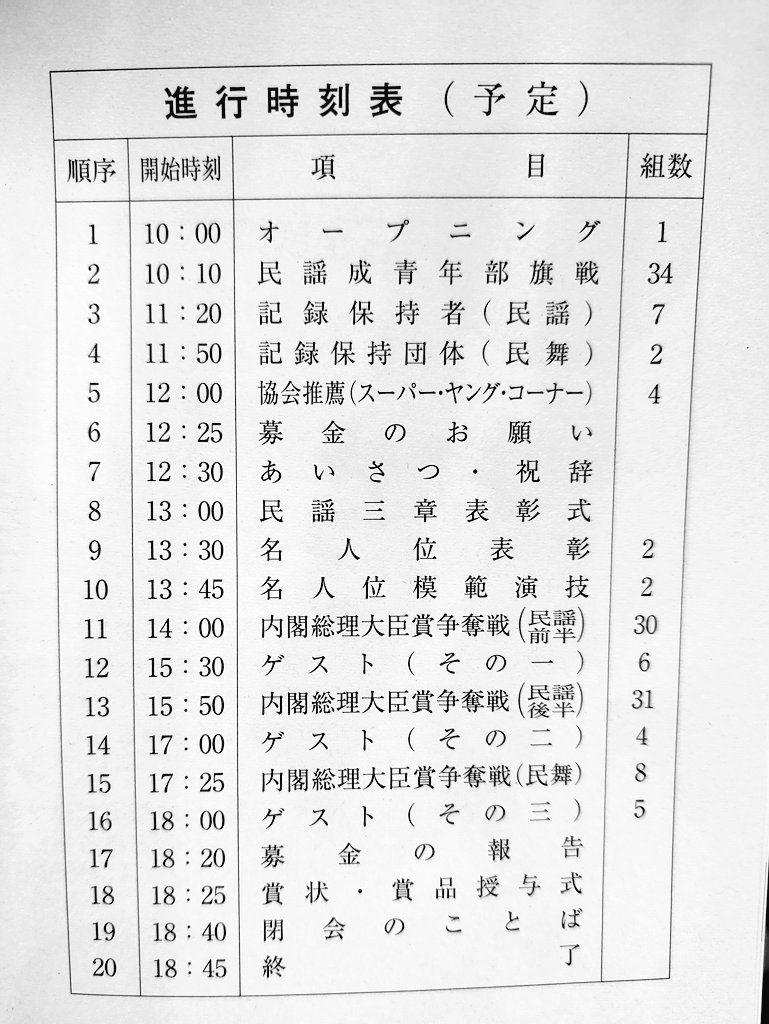 進行時刻表(予定)
順序 開始時刻 項目 組数
1 10:00 オープニング 1
2 10:10 民謡成青年部旗戦 34
3 11:20 記録保持者(民謡) 7
4 11:50 記録保持団体(民舞) 2
5 12:00 協会推薦(スーパー・ヤング・コーナー) 4
6 12:25 募金のお願い
7 12:30 あいさつ・祝辞
8 13:00 民謡三章表彰式
9 13:30 名人位表彰 2
10 13:45 名人位模範演技 2
11 14:00 内閣総理大臣賞争奪戦(民謡前半) 30
12 15:30 ゲスト(その一) 6
13 15:50 内閣総理大臣賞争奪戦(民謡後半) 31
14 17:00 ゲスト(その二) 4
15 17:25 内閣総理大臣賞争奪戦(民舞) 8
16 18:00 ゲスト(その三) 5
17 18:20 募金の報告
18 18:25 賞状・賞品授与式
19 18:40 閉会のことば
20 18:45 終了